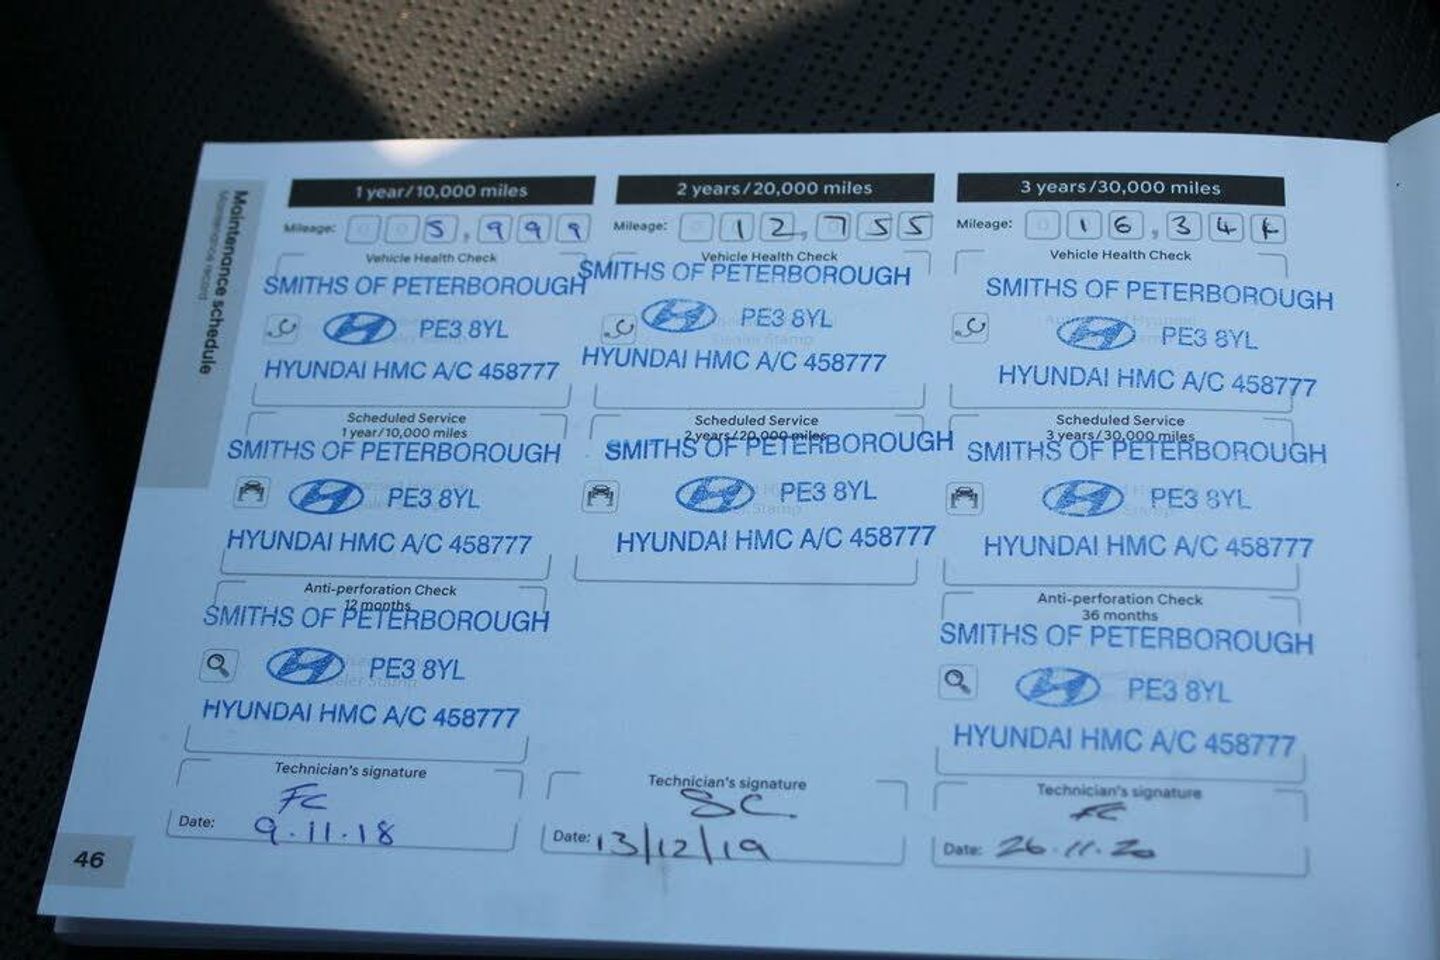 Maintenance schedule
Maintenance record
1 year/10,000 miles
Mileage: 005,999
Vehicle Health Check
SMITHS OF PETERBOROUGH
PE3 8YL
HYUNDAI HMC A/C 458777
Scheduled Service
1 year/10,000 miles
SMITHS OF PETERBOROUGH
PE3 8YL
HYUNDAI HMC A/C 458777
Anti-perforation Check
12 months
SMITHS OF PETERBOROUGH
PE3 8YL
HYUNDAI HMC A/C 458777
Technician's signature
FC
Date: 9.11.18
2 years/20,000 miles
Mileage: 012,755
Vehicle Health Check
SMITHS OF PETERBOROUGH
PE3 8YL
HYUNDAI HMC A/C 458777
Scheduled Service
2 years/20,000 miles
SMITHS OF PETERBOROUGH
PE3 8YL
HYUNDAI HMC A/C 458777
Technician's signature
SC
Date: 13/12/19
3 years/30,000 miles
Mileage: 016,344
Vehicle Health Check
SMITHS OF PETERBOROUGH
PE3 8YL
HYUNDAI HMC A/C 458777
Scheduled Service
3 years/30,000 miles
SMITHS OF PETERBOROUGH
PE3 8YL
HYUNDAI HMC A/C 458777
Anti-perforation Check
36 months
SMITHS OF PETERBOROUGH
PE3 8YL
HYUNDAI HMC A/C 458777
Technician's signature
FC
Date: 26.11.20
46